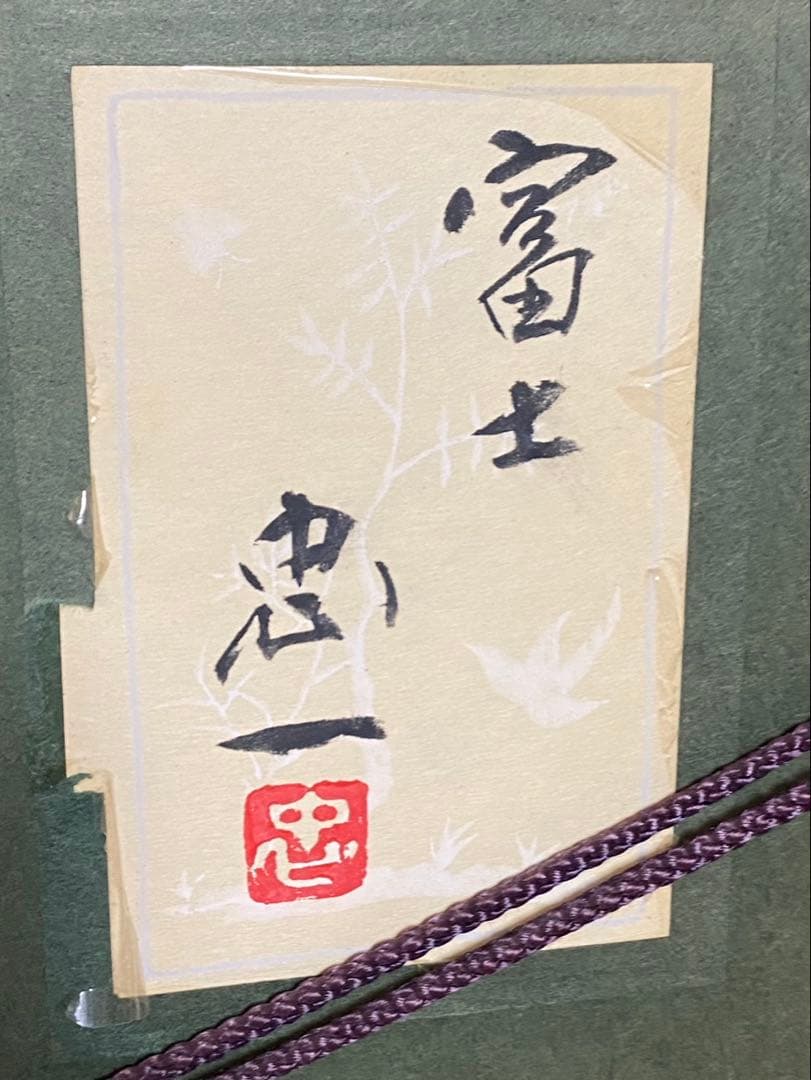 富士
忠一
忠